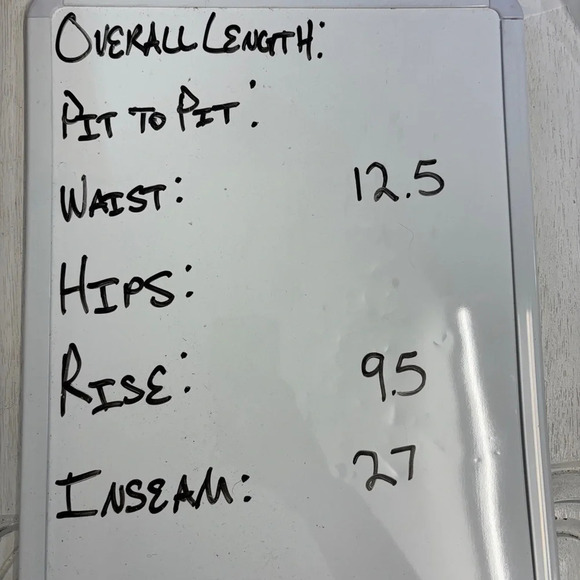 OVERALL LENGTH:
PIT TO PIT:
WAIST: 12.5
HIPS:
RISE: 9.5
INSEAM: 27